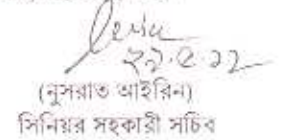 ২২.৫.২২
(নুসরাত আইরিন)
সিনিয়র সহকারী সচিব